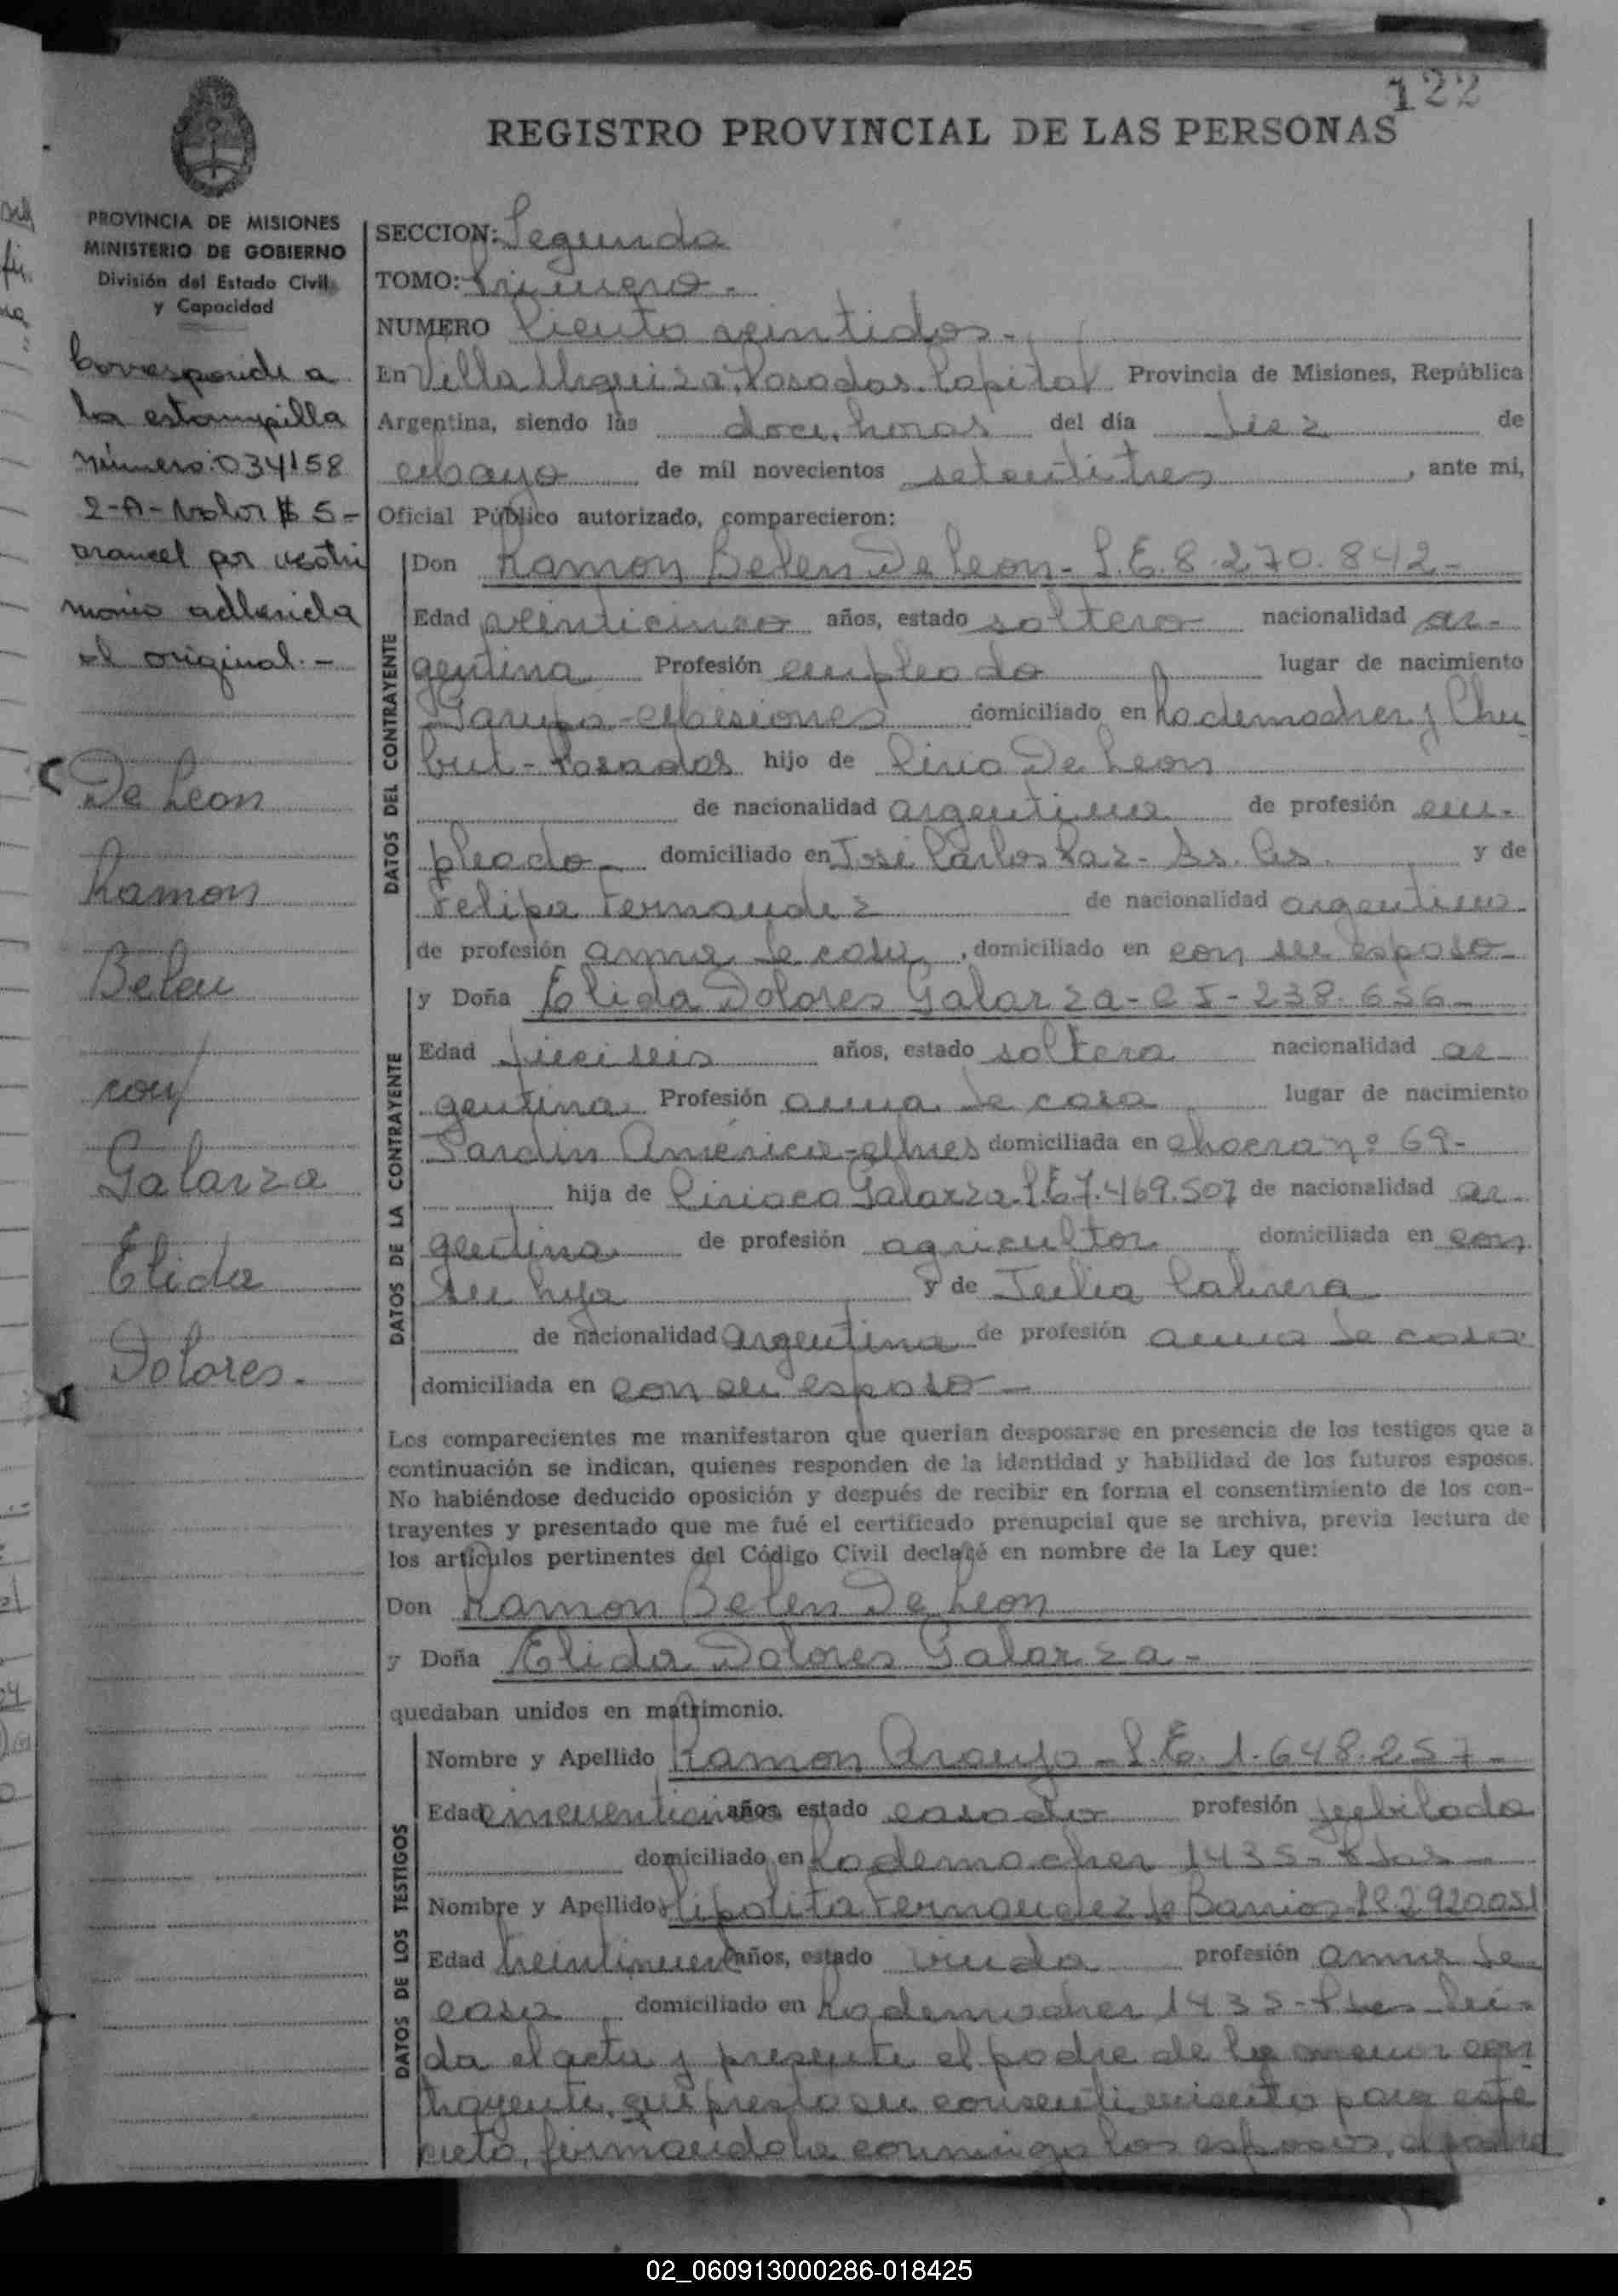 122
REGISTRO PROVINCIAL DE LAS PERSONAS
PROVINCIA DE MISIONES
MINISTERIO DE GOBIERNO
División del Estado Civil
y Capacidad
Corresponde a
la estampilla
número 034158
2-A- Valor $ 5-
arancel por matri
monio adherida
al original.-
De Leon
Ramon
Belen
con
Galarza
Elida
Dolores.
SECCION: Segunda
TOMO: Primero.-
NUMERO Ciento veintidos-
En Villa Urquiza, Posadas, Capital Provincia de Misiones, República
Argentina, siendo las doce horas del día diez de
Mayo de mil novecientos setentitres, ante mi,
Oficial Público autorizado, comparecieron:
DATOS DEL CONTRAYENTE
Don Ramon Belen De Leon- L.E. 8.270.842-
Edad veinticinco años, estado soltero nacionalidad ar-
gentina Profesión empleado lugar de nacimiento
Garupá-Misiones domiciliado en Rademacher y Chu
but-Posadas hijo de Lirio De Leon
de nacionalidad argentina de profesión em-
pleado- domiciliado en José Carlos Paz- Bs. As. y de
Felipa Fernandez de nacionalidad argentina
de profesión ama de casa, domiciliado en con su esposo-
DATOS DE LA CONTRAYENTE
y Doña Elida Dolores Galarza- CI- 238.656-
Edad dieciseis años, estado soltera nacionalidad ar
gentina Profesión ama de casa lugar de nacimiento
Jardin América-Mnes domiciliada en chacra nº 69-
hija de Ciriaco Galarza L.E 7.469.507 de nacionalidad ar-
gentina de profesión agricultor domiciliada en con
su hija y de Julia Cabrera
de nacionalidad argentina de profesión ama de casa
domiciliada en con su esposo-
Los comparecientes me manifestaron que querían desposarse en presencia de los testigos que a
continuación se indican, quienes responden de la identidad y habilidad de los futuros esposos.
No habiéndose deducido oposición y después de recibir en forma el consentimiento de los con-
trayentes y presentado que me fué el certificado prenupcial que se archiva, previa lectura de
los artículos pertinentes del Código Civil declaré en nombre de la Ley que:
Don Ramon Belen De Leon
y Doña Elida Dolores Galarza-
quedaban unidos en matrimonio.
DATOS DE LOS TESTIGOS
Nombre y Apellido Ramon Araujo- L.E. 1.648.257-
Edad años estado casado profesión jubilado
domiciliado en Rademacher 1435- Pdas-
Nombre y Apellido Hipolita Fernandez de Barrios LC 2920051
Edad treintinueve años, estado viuda profesión ama de
casa domiciliado en Rademacher 1435- Lei-
da el acta y presente el padre de la menor con
trayente, que presto su consentimiento para este
acto, firmandola conmigo los esposos, el padre
02_060913000286-018425